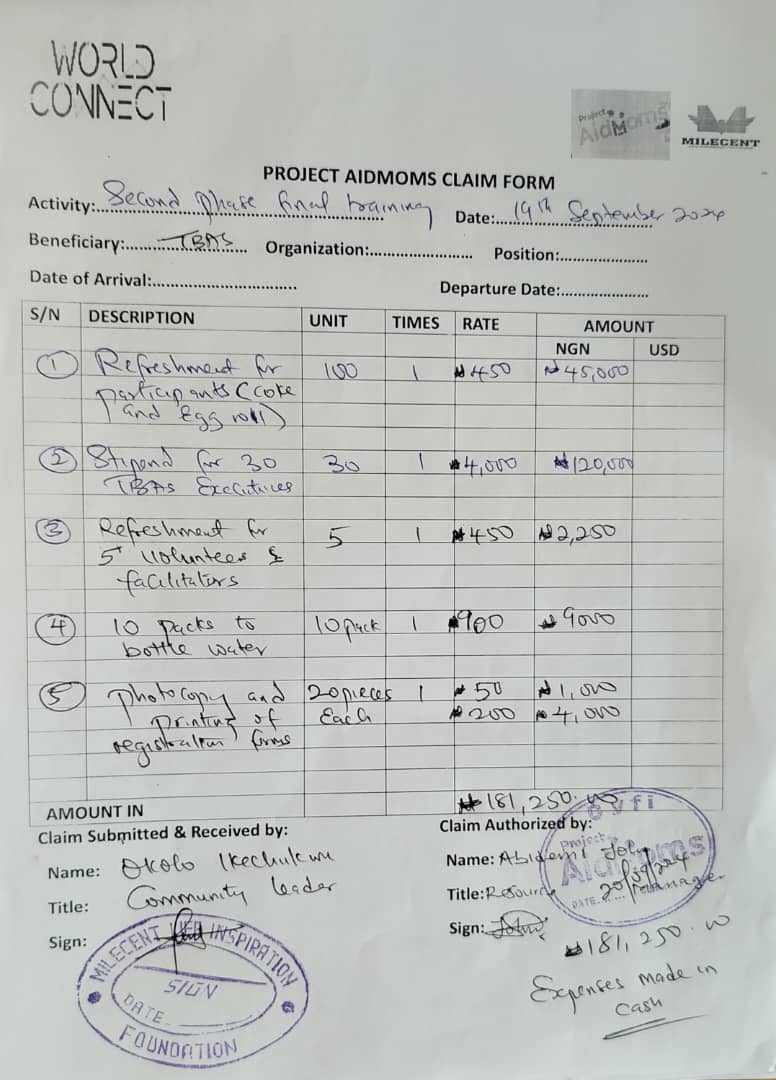 WORLD
CONNECT
Project
AidMoms
MILECENT
PROJECT AIDMOMS CLAIM FORM
Activity: Second phase final training Date: 19th September 2024
Beneficiary: TBAS Organization: Position:
Date of Arrival: Departure Date:
S/N DESCRIPTION UNIT TIMES RATE AMOUNT
NGN USD
1 Refreshment for 100 1 ₦450 ₦45,000
participants (coke
and Egg roll)
2 Stipend for 30 30 1 ₦4,000 ₦120,000
TBAs Executives
3 Refreshment for 5 1 ₦450 ₦2,250
5 volunteers &
facilitators
4 10 packs to 10 pack 1 ₦900 ₦9000
bottle water
5 photocopy and 20 pieces 1 ₦50 ₦1,000
printing of Each ₦200 ₦4,000
registration forms
₦181,250.00
AMOUNT IN
Claim Submitted & Received by: Claim Authorized by:
Name: Okolo Ikechukwu Name: Abidemi John
Title: Community leader Title: Resource manager
Sign: Sign: John
Project
AidMoms
DATE 20/09/2024
₦181,250.00
Expenses made in
cash
MILECENT INSPIRATION
SIGN
DATE
FOUNDATION